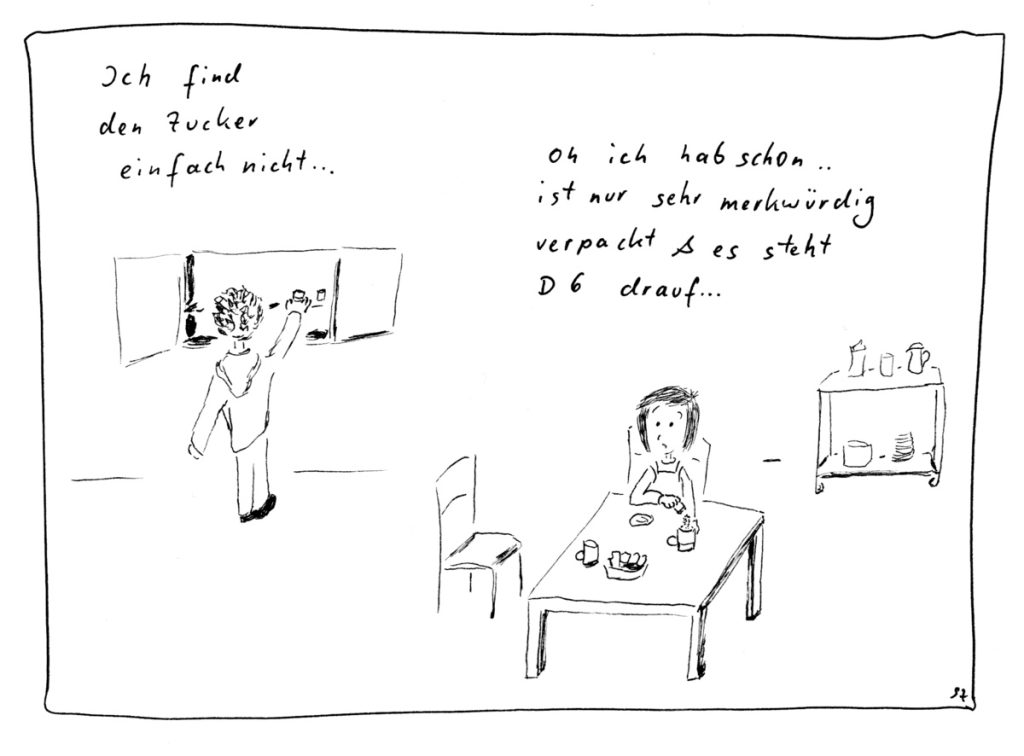 Ich find
den Zucker
einfach nicht...
oh ich hab schon..
ist nur sehr merkwürdig
verpackt & es steht
D6 drauf...
97